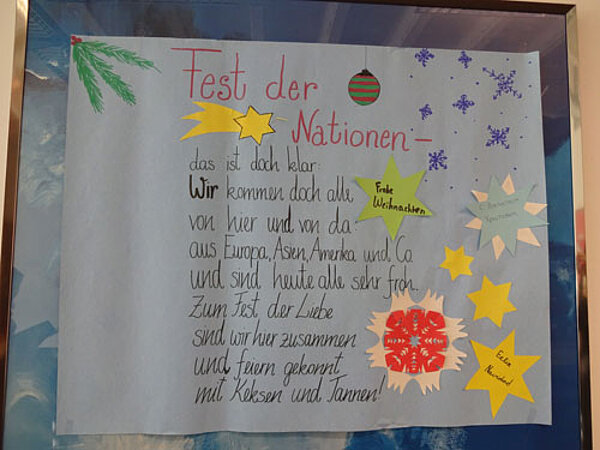 Fest der
Nationen -
das ist doch klar:
Wir kommen doch alle
von hier und von da:
aus Europa, Asien, Amerika und Co.
und sind heute alle sehr froh.
Zum Fest der Liebe
sind wir hier zusammen
und feiern gekonnt
mit Keksen und Tannen!
Frohe
Weihnachten
Feliz
Navidad